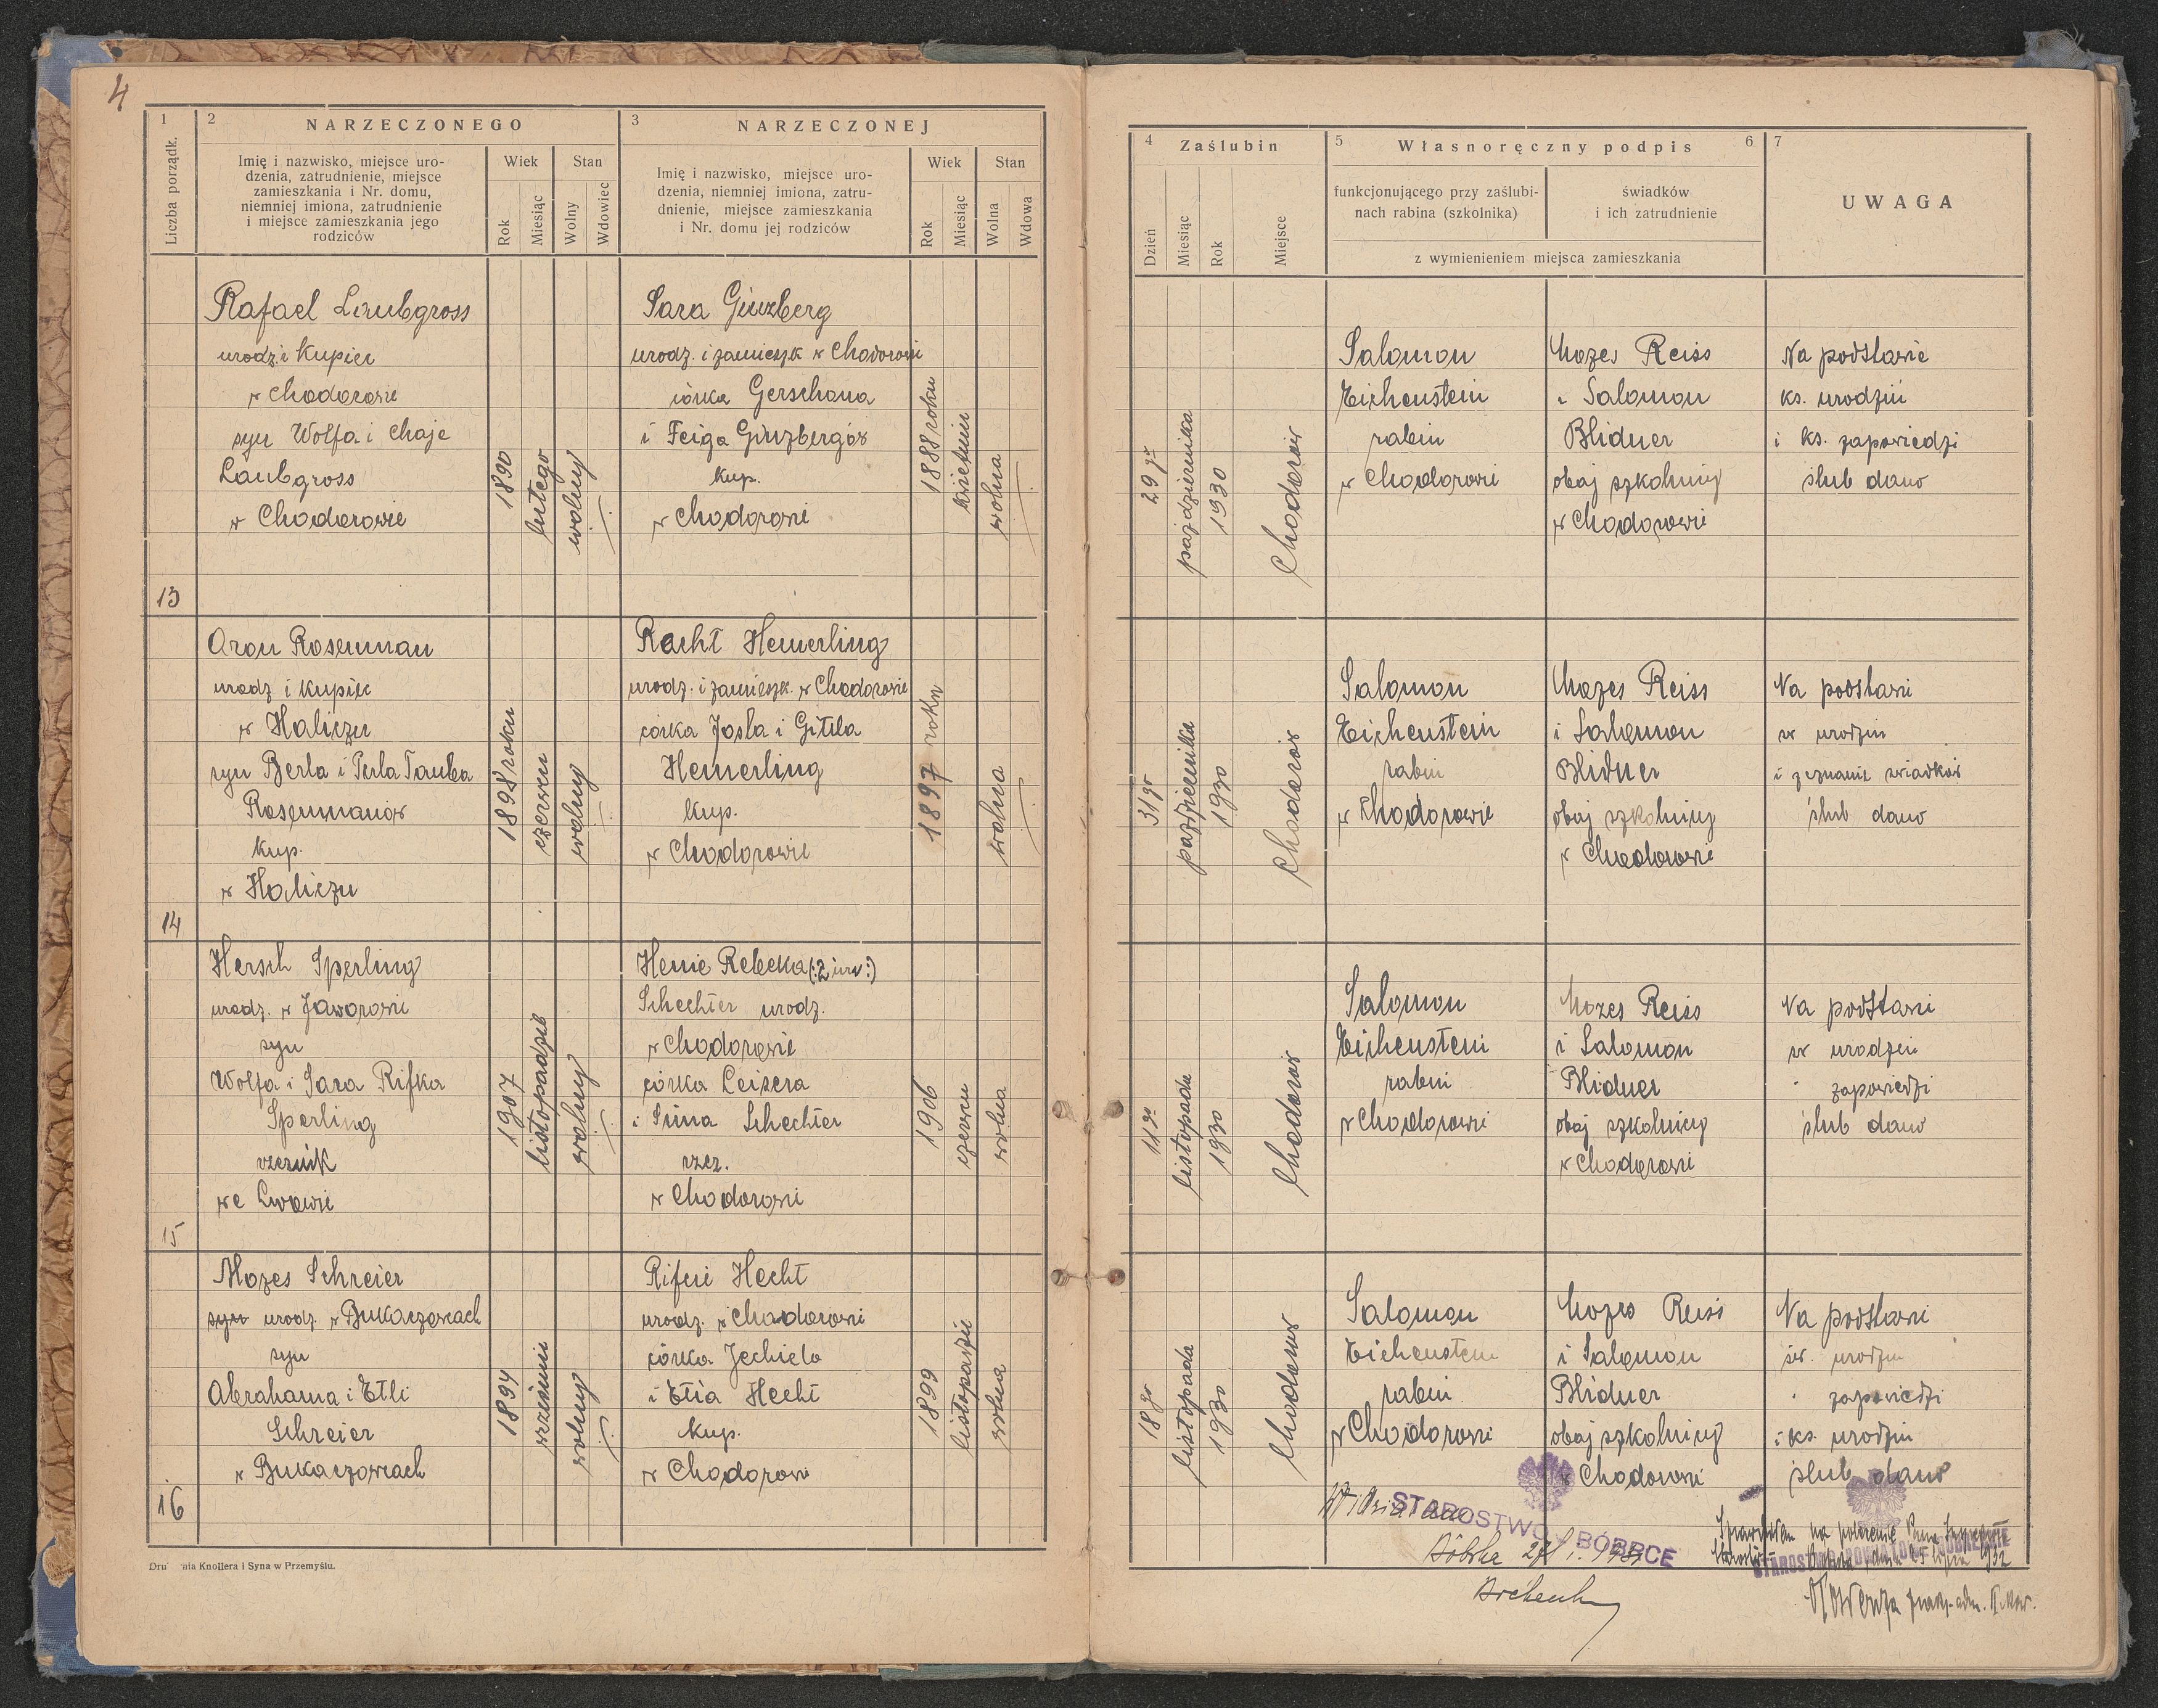 4
1
Liczba porządk.
2
NARZECZONEGO
Imię i nazwisko, miejsce uro-
dzenia, zatrudnienie, miejsce
zamieszkania i Nr. domu,
niemniej imiona, zatrudnienie
i miejsce zamieszkania jego
rodziców
Wiek
Rok
Miesiąc
Stan
Wolny
Wdowiec
3
NARZECZONEJ
Imię i nazwisko, miejsce uro-
dzenia, niemniej imiona, zatru-
dnienie, miejsce zamieszkania
i Nr. domu jej rodziców
Wiek
Rok
Miesiąc
Stan
Wolna
Wdowa
4
Zaślubin
Dzień
Miesiąc
Rok
Miejsce
5
Własnoręczny podpis
6
funkcjonującego przy zaślubi-
nach rabina (szkolnika)
świadków
i ich zatrudnienie
z wymienieniem miejsca zamieszkania
7
UWAGA
13
Rafael Laubgross
urodz. i kupiec
w Chodorowie
syn Wolfa i Chaje
Laubgross
w Chodorowie
1890
lutego
wolny
Sara Ginzberg
urodz. i zamieszk w Chodorowie
córka Gerschona
i Feiga Ginzbergów
kup.
w Chodorowie
1888 roku
kwietniu
wolna
29 go
października
1930
Chodorów
Salomon
Eichenstein
rabin
w Chodorowie
Mozes Reiss
i Salomon
Blidner
obaj szkolnicy
w Chodorowie
Na podstawie
ks. urodzin
i ks. zapowiedzi
ślub dano
14
Aron Rosenman
urodz i kupiec
w Haliczu
syn Berla i Perla Tauba
Rosenmanów
kup.
w Haliczu
1898 roku
czerwcu
wolny
Rachl Hemerling
urodz. i zamieszk. w Chodorowie
córka Josla i Gitila
Hemerling
kup.
w Chodorowie
1897 roku
wolna
31 go
października
1930
Chodorów
Salomon
Eichenstein
rabin
w Chodorowie
Mozes Reiss
i Salomon
Blidner
obaj szkolnicy
w Chodorowie
Na podstawi
św urodzin
i zeznanie świadków
ślub dano
15
Hersch Sperling
urodz. w Jaworowie
syn
Wolfa i Sara Rifka
Sperling
rzeźnik
we Lwowie
1907
listopadzie
wolny
Henie Rebeka (:2 im:)
Schechter urodz.
w Chodorowie
córka Leisera
i Sima Schechter
rzez.
w Chodorowie
1906
czerwcu
wolna
11 go
listopada
1930
Chodorów
Salomon
Eichenstein
rabin
w Chodorowie
Mozes Reiss
i Salomon
Blidner
obaj szkolnicy
w Chodorowie
Na podstawi
św urodzin
" zapowiedzi
ślub dano
16
Mozes Schreier
syn urodz. w Bukaczowcach
syn
Abrahama i Etli
Schreier
w Bukaczowcach
1894
wrześniu
wolny
Rifcie Hecht
urodz. w Chodorowie
córka Jechiela
i Etia Hecht
kup.
w Chodorowie
1899
listopadzie
wolna
18 go
listopada
1930
Chodorów
Salomon
Eichenstein
rabin
w Chodorowie
Mozes Reiss
i Salomon
Blidner
obaj szkolnicy
w Chodorowie
Na podstawi
św. urodzin
" zapowiedzi
i ks. urodzin
ślub dano
Widziano
STAROSTWO BÓBRCE
Bóbrka 27 I. 1931
Sprawdziłem na polecenie Pana
Starosty Bóbrka dnia 25 lipca 1932
Drukarnia Knollera i Syna w Przemyślu.